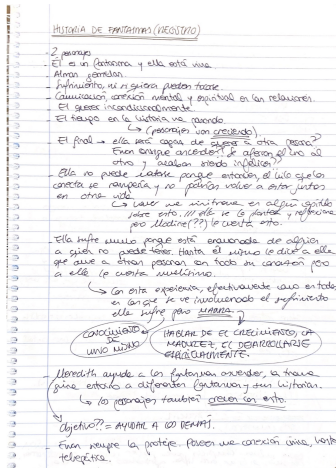 HISTORIA DE FANTASMAS (MEGSTMO)
- 2 personajes
- Él es un fantasma y ella está viva
- Almas gemelas.
- Sufrimiento, ni siquiera pueden tocarse
- Comunicación, conexión mental y espiritual en las relaciones.
- El querer incondicionalmente
- El tiempo en la historia va pasando
↳ (personajes van creciendo)
- El final → ella será capaz de querer a otra persona?
Evan ascender? Se aferran el uno al
otro y acaban siendo infelices?
- Ella no puede porque entonces, el hilo que los
conecta se rompería y no podrían volver a estar juntos
en otra vida
↳ en algún capítulo
sobre esto, /// ella se lo plantea y
pero (??) le cuenta esto.
- Ella sufre mucho porque está enamorada de alguien
a quien no puede tener. Hasta él mismo le dice a ella
que ame a otras personas con todo su corazón pero
a ella le cuesta muchísimo.
↳ Con esta experiencia, efectivamente como en todas
en las que se ve involucrado el sufrimiento
ella sufre pero MADURA
CONOCIMIENTO DE UNO MISMO
HABLAR DE EL CRECIMIENTO, LA
MADUREZ, EL DESARROLLARSE
ESPIRITUALMENTE.
- Meredith ayuda a los fantasmas a ascender, la trama
gira entorno a diferentes fantasmas y sus historias.
↳ los personajes también crecen con esto.
Objetivo?? = AYUDAR A LOS DEMÁS.
- Evan siempre la protege. Poseen una conexión única, hasta
telepática.